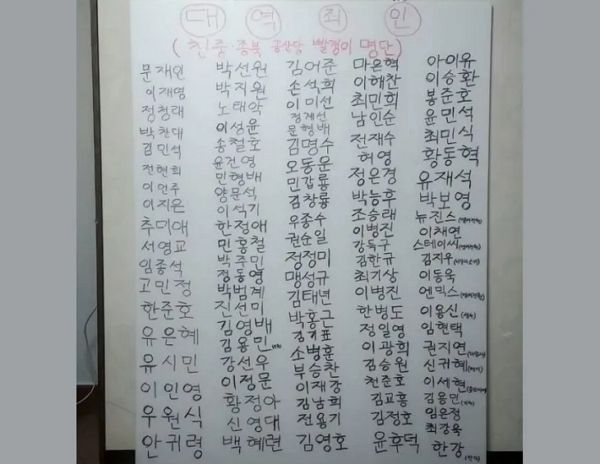 대역죄인
(친중·종북 공산당 빨갱이 명단)
문재인
이재명
정청래
박찬대
김민석
전현희
이언주
이지은
추미애
서영교
임종석
고민정
한준호
유은혜
유시민
이인영
우원식
안귀령
박선원
박지원
노태악
이성윤
송철호
윤건영
민형배
양문석
이석기
한정애
민홍철
박주민
정동영
박범계
진선미
김영배
김용민
강선우
이정문
황정아
신영대
백혜련
김어준
손석희
이미선
정계선
문형배
김명수
오동운
민갑룡
김창룡
우종수
권순일
정정미
맹성규
김태년
박홍근
김기표
소병훈
부승찬
이재강
김남희
전용기
김영호
마은혁
이해찬
최민희
남인순
전재수
허영
정은경
박능후
조승래
이병진
강득구
김한규
최기상
이병진
한병도
정일영
이광희
김승원
천준호
김교흥
김정호
윤후덕
아이유
이승환
봉준호
윤민석
최민식
황동혁
유재석
박보영
뉴진스
이채연
스테이씨
김지우
이동욱
엔믹스
이용신
임현택
권지연
신귀혜
이세현
김용민
임은정
최강욱
한강